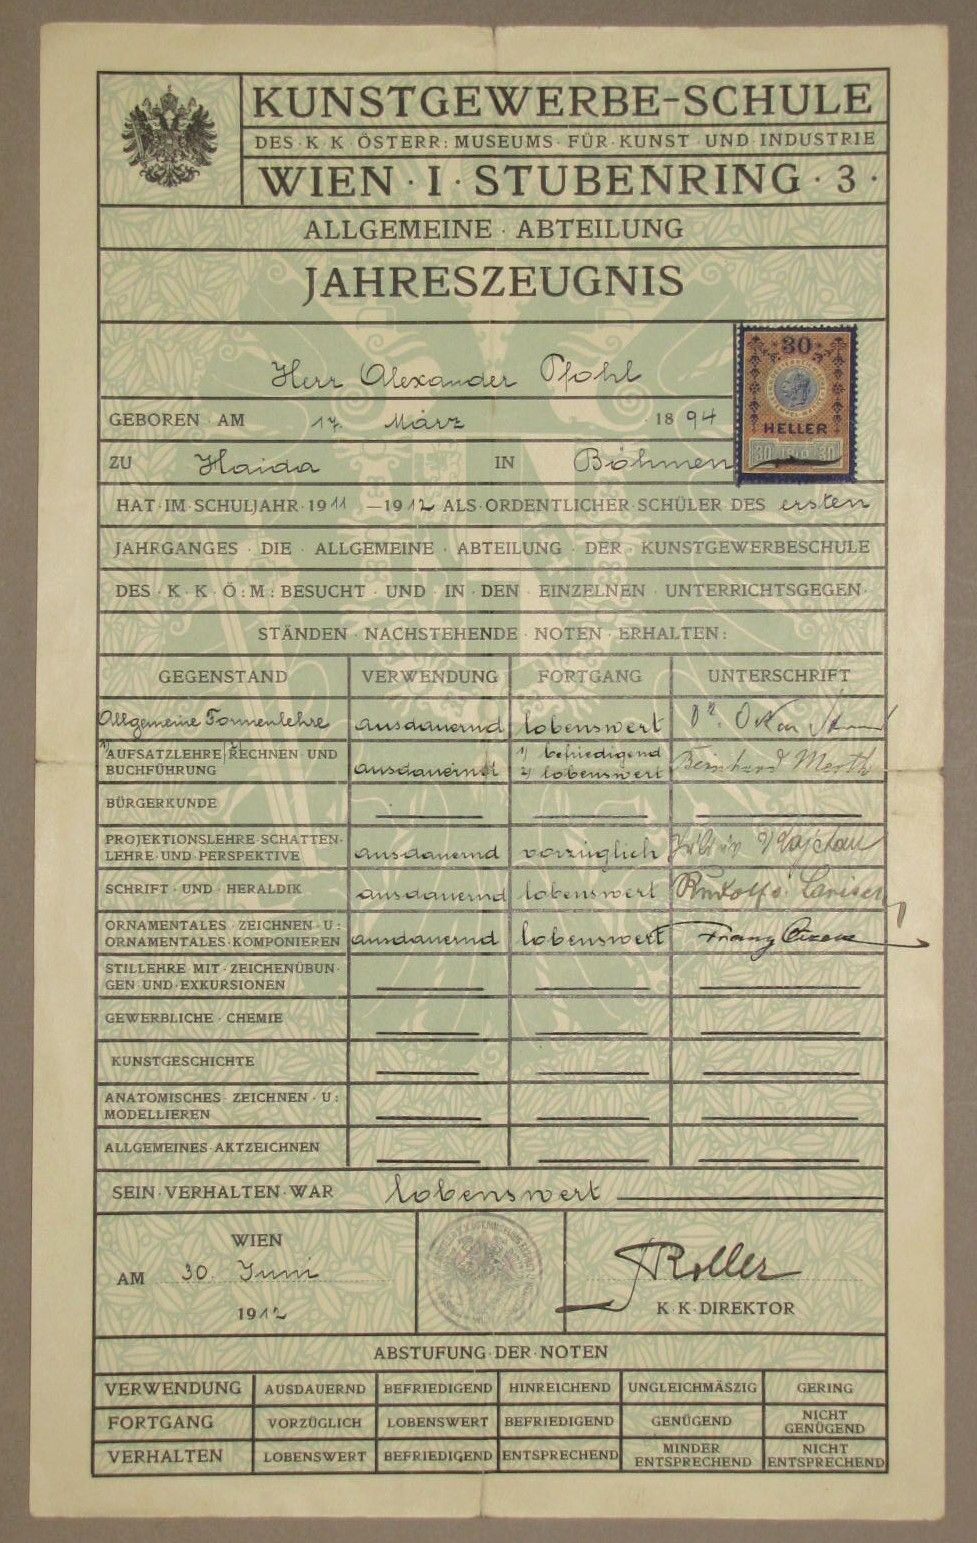 KUNSTGEWERBE-SCHULE
DES·K·K·ÖSTERR:MUSEUMS·FÜR·KUNST·UND·INDUSTRIE
WIEN·I·STUBENRING·3·
ALLGEMEINE·ABTEILUNG
JAHRESZEUGNIS
Herr Alexander Pfohl
30
HELLER
30 30
GEBOREN·AM 17. März 1894
ZU Haida IN Böhmen
HAT·IM·SCHULJAHR·1911–1912 ALS·ORDENTLICHER·SCHÜLER·DES ersten
JAHRGANGES·DIE·ALLGEMEINE·ABTEILUNG·DER·KUNSTGEWERBESCHULE
DES·K·K·Ö:M:BESUCHT·UND·IN·DEN·EINZELNEN·UNTERRICHTSGEGEN·
STÄNDEN·NACHSTEHENDE·NOTEN·ERHALTEN:
GEGENSTAND VERWENDUNG FORTGANG UNTERSCHRIFT
Allgemeine Formenlehre ausdauernd lobenswert Dr. Oskar
1) AUFSATZLEHRE 2) RECHNEN·UND 1) befriedigend
BUCHFÜHRUNG ausdauernd 2) lobenswert
BÜRGERKUNDE
PROJEKTIONSLEHRE·SCHATTEN·
LEHRE·UND·PERSPEKTIVE ausdauernd vorzüglich
SCHRIFT·UND·HERALDIK ausdauernd lobenswert Rudolf v. Larisch
ORNAMENTALES·ZEICHNEN·U:
ORNAMENTALES·KOMPONIEREN ausdauernd lobenswert Franz Cizek
STILLEHRE·MIT·ZEICHENÜBUN·
GEN·UND·EXKURSIONEN
GEWERBLICHE·CHEMIE
KUNSTGESCHICHTE
ANATOMISCHES·ZEICHNEN·U:
MODELLIEREN
ALLGEMEINES·AKTZEICHNEN
SEIN·VERHALTEN·WAR lobenswert
WIEN
AM 30. Juni
1912
Roller
K·K·DIREKTOR
ABSTUFUNG·DER·NOTEN
VERWENDUNG AUSDAUERND BEFRIEDIGEND HINREICHEND UNGLEICHMÄSZIG GERING
FORTGANG VORZÜGLICH LOBENSWERT BEFRIEDIGEND GENÜGEND NICHT GENÜGEND
VERHALTEN LOBENSWERT BEFRIEDIGEND ENTSPRECHEND MINDER ENTSPRECHEND NICHT ENTSPRECHEND